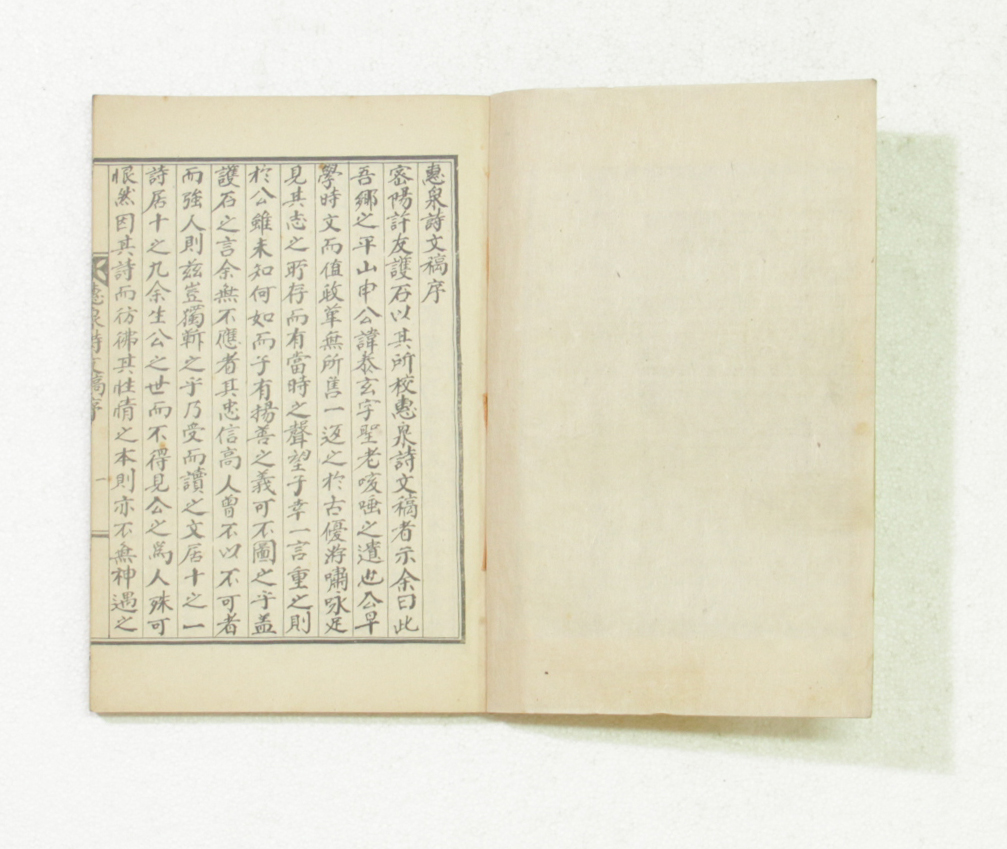 惠泉詩文稿序
密陽許友護石以其所校惠泉詩文稿者示余曰此
吾鄉之平山申公諱泰玄字聖老咳唾之遺也公早
學時文而值政革無所售一返之於古優游嘯咏足
見其志之所存而有當時之聲望子幸一言重之則
於公雖未知何如而于有揚善之義可不圖之乎盖
護石之言余無不應者其忠信高人曾不以不可者
而強人則玆豈獨靳之乎乃受而讀之文居十之一
詩居十之九余生公之世而不得見公之爲人殊可
恨然因其詩而彷彿其性情之本則亦不無神遇之
惠泉詩文稿序 一